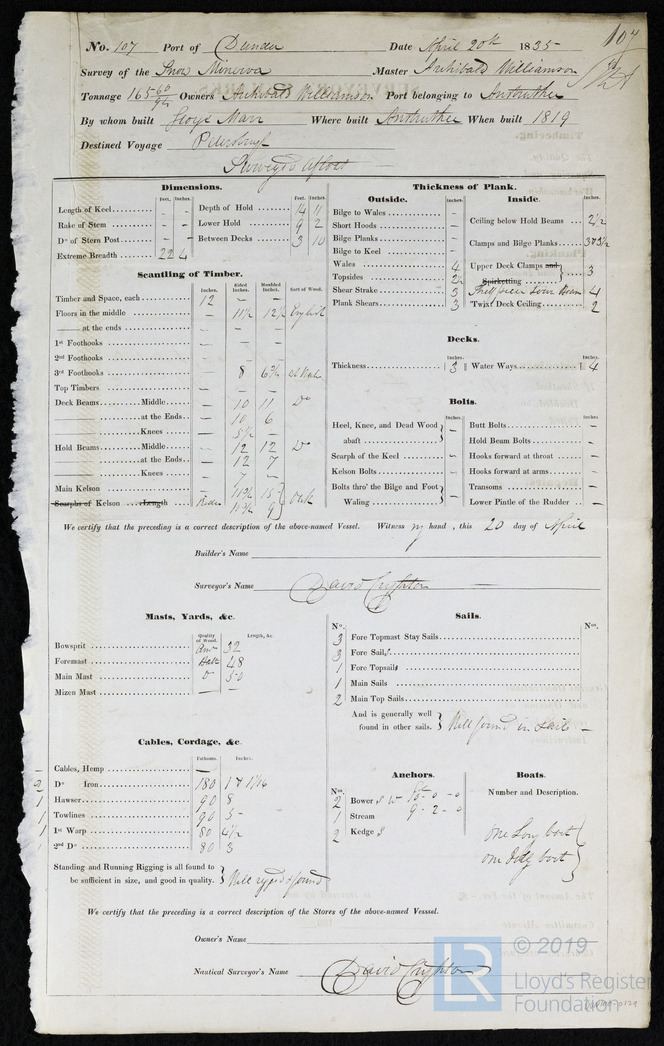 No. 107 Port of Dundee Date April 20th 1835 107
Survey of the Snow Minerva Master Archibald Williamson
Tonnage 165 60/94 Owners Archibald Williamson Port belonging to Anstruther
By whom built George Marr Where built Anstruther When built 1819
Destined Voyage Petersburgh
Surveyed afloat
Dimensions.
Feet. Inches. Feet. Inches.
Length of Keel - - Depth of Hold 14 11
Rake of Stem - - Lower Hold 9 2
Do of Stern Post - - Between Decks 3 10
Extreme Breadth 22 4
Thickness of Plank.
Outside. Inside.
Inches. Inches.
Bilge to Wales - Ceiling below Hold Beams 2 1/2
Short Hoods -
Bilge Planks - Clamps and Bilge Planks 3 & 3 1/2
Bilge to Keel -
Wales 4 Upper Deck Clamps and 3
Topsides 2 1/2 Spirketting
Shear Strake 3 Shelf piece Lower Beam 4
Plank Shears 3 'Twixt Deck Ceiling 2
Scantling of Timber.
Inches. Sided Inches. Moulded Inches. Sort of Wood.
Timber and Space, each 12 - -
Floors in the middle - 11 1/2 12 1/2 English
at the ends - - -
1st Foothooks - - -
2nd Foothooks - - -
3rd Foothooks - 8 6 3/4
Top Timbers - - -
Deck Beams Middle - 10 11 Do
at the Ends - 10 6
Knees - 5 1/2 -
Hold Beams Middle - 12 12 Do
at the Ends - 12 7
Knees - - -
Main Kelson - 11 1/2 15 Oak
Scarphs of Kelson Length Rider 11 1/2 9
Decks.
Inches. Inches.
Thickness 3 Water Ways 4
Bolts.
Inches. Inches
Heel, Knee, and Dead Wood abaft - Butt Bolts -
Hold Beam Bolts -
Scarph of the Keel - Hooks forward at throat -
Kelson Bolts - Hooks forward at arms -
Bolts thro' the Bilge and Foot Waling - Transoms -
Lower Pintle of the Rudder -
We certify that the preceding is a correct description of the above-named Vessel. Witness my hand, this 20 day of April
Builder's Name
Surveyor's Name David Crighton
Masts, Yards, &c.
Quality of Wood. Length, &c.
Bowsprit 32
Foremast 48
Main Mast 50
Mizen Mast - -
Sails.
No. Nos.
3 Fore Topmast Stay Sails
3 Fore Sails
1 Fore Topsails
1 Main Sails
2 Main Top Sails
And is generally well found in other sails. Well found in sails -
Cables, Cordage, &c.
Fathoms. Inches.
Cables, Hemp -
2 Do Iron 180 1 & 1 1/16
1 Hawser 90 8
1 Towlines 90 5
1 1st Warp 80 4 1/2
1 2nd Do 80 3
Standing and Running Rigging is all found to
be sufficient in size, and good in quality. Well rigged & found
Anchors.
Nos.
2 Bowers
1 Stream
2 Kedge s
Boats.
Number and Description.
one Long boat
one Jolly boat
We certify that the preceding is a correct description of the Stores of the above-named Vesssel.
Owner's Name
Nautical Surveyor's Name David Crighton
LR © 2019
Lloyd's Register
Foundation